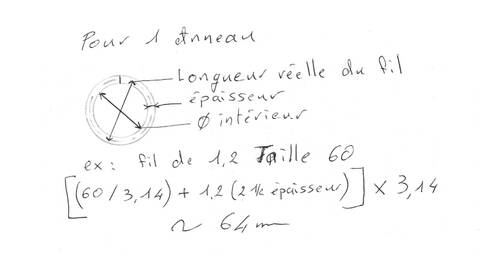 Pour 1 Anneau
Longueur réelle du fil
épaisseur
Ø intérieur
ex: fil de 1,2 Taille 60
[(60/3,14) + 1,2 (2 ½ épaisseur)] x 3,14
~ 64mm